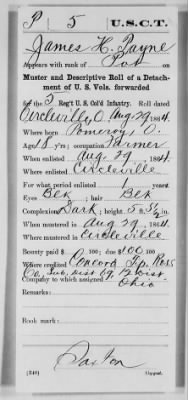 P 5 U.S.C.T.
James H. Payne
Appears with rank of Pvt on
Muster and Descriptive Roll of a Detach-
ment of U. S. Vols. forwarded
for the 5 Reg't U. S. Col'd Infantry. Roll dated
Circleville O. Aug 29, 1864.
Where born Pomeroy, O.
Age 18 y'rs; occupation Farmer
When enlisted Aug. 29, 1864.
Where enlisted Circleville
For what period enlisted 1 years.
Eyes Blk; hair Blk
Complexion Dark; height 5 ft. 5½ in.
When mustered in Aug 29, 1864.
Where mustered in Circleville
Bounty paid $ 100; due $ 100
Where credited Concord Tp. Ross
Co, Sub. Dist 69, 12 Dist
Company to which assigned Ohio
Remarks:
Book mark:
Saxton
(340) Copyist.